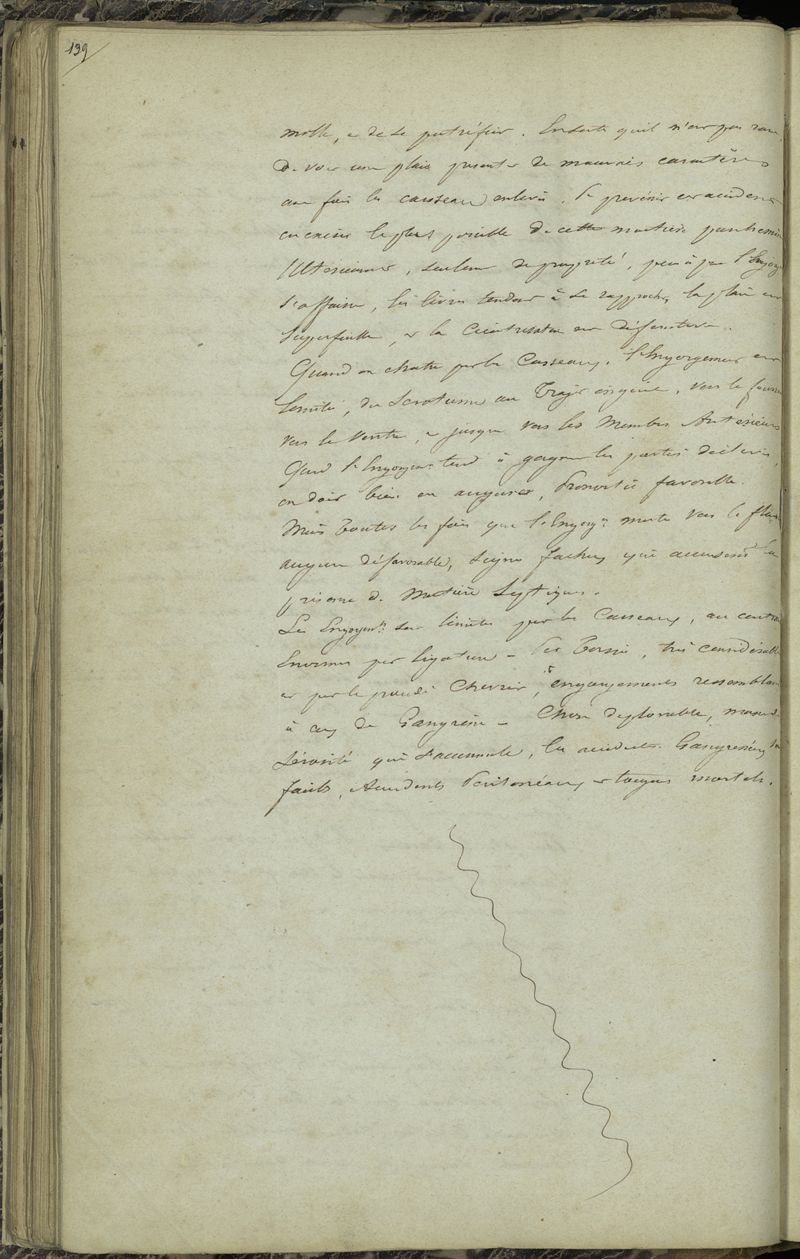 199
molle, & de se putréfier. Ensorte qu'il n'est pas rare
de voir une plaie présenter de mauvais caractères
une fois les casseaux enlevés. Pr prévenir cet accident
on excise le plus possible de cette matière parcheminée
Ultérieurement, seulement de propreté, peu à peu l'Engorg
s'affaisse, les lèvres tendent à se rapprocher, la plaie est
superficielle, et la Cicatrisation est définitive.
Quand on chatre par les Casseaux, l'Engorgement est
limité, du Scrotum au Trajet inguinal, vers le fourreau
vers le Ventre, & jusque vers les Membres Antérieurs
Quand l'Engorgement tend à gagner les parties déclives,
on doit bien en augurer, Pronostic favorable.
Mais Toutes les fois que l'Engorgt monte vers le flanc
augure défavorable, signe facheux qui annonce la
présence de Matière Septique.
Les Engorgts sont limités par les Casseaux, au contraire
Enormes par ligature - Par Torsion, très considérable
et par le procédé Chevrier, engorgements ressemblant
à ceux de Gangrène - Chose déplorable,
Sérosité qui s'accumule, les accidents Gangréneux
faits, Accidents Péritonéaux & toujours mortels.